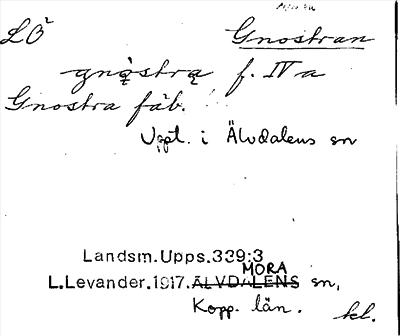 LÖ Gnostran
gnǫstrą f. IV a
Gnostra fäb.
Uppt. i Älvdalens sn
Landsm.Upps.339:3
MORA
L.Levander.1917.ÄLVDALENS sn,
Kopp. län.
kl.